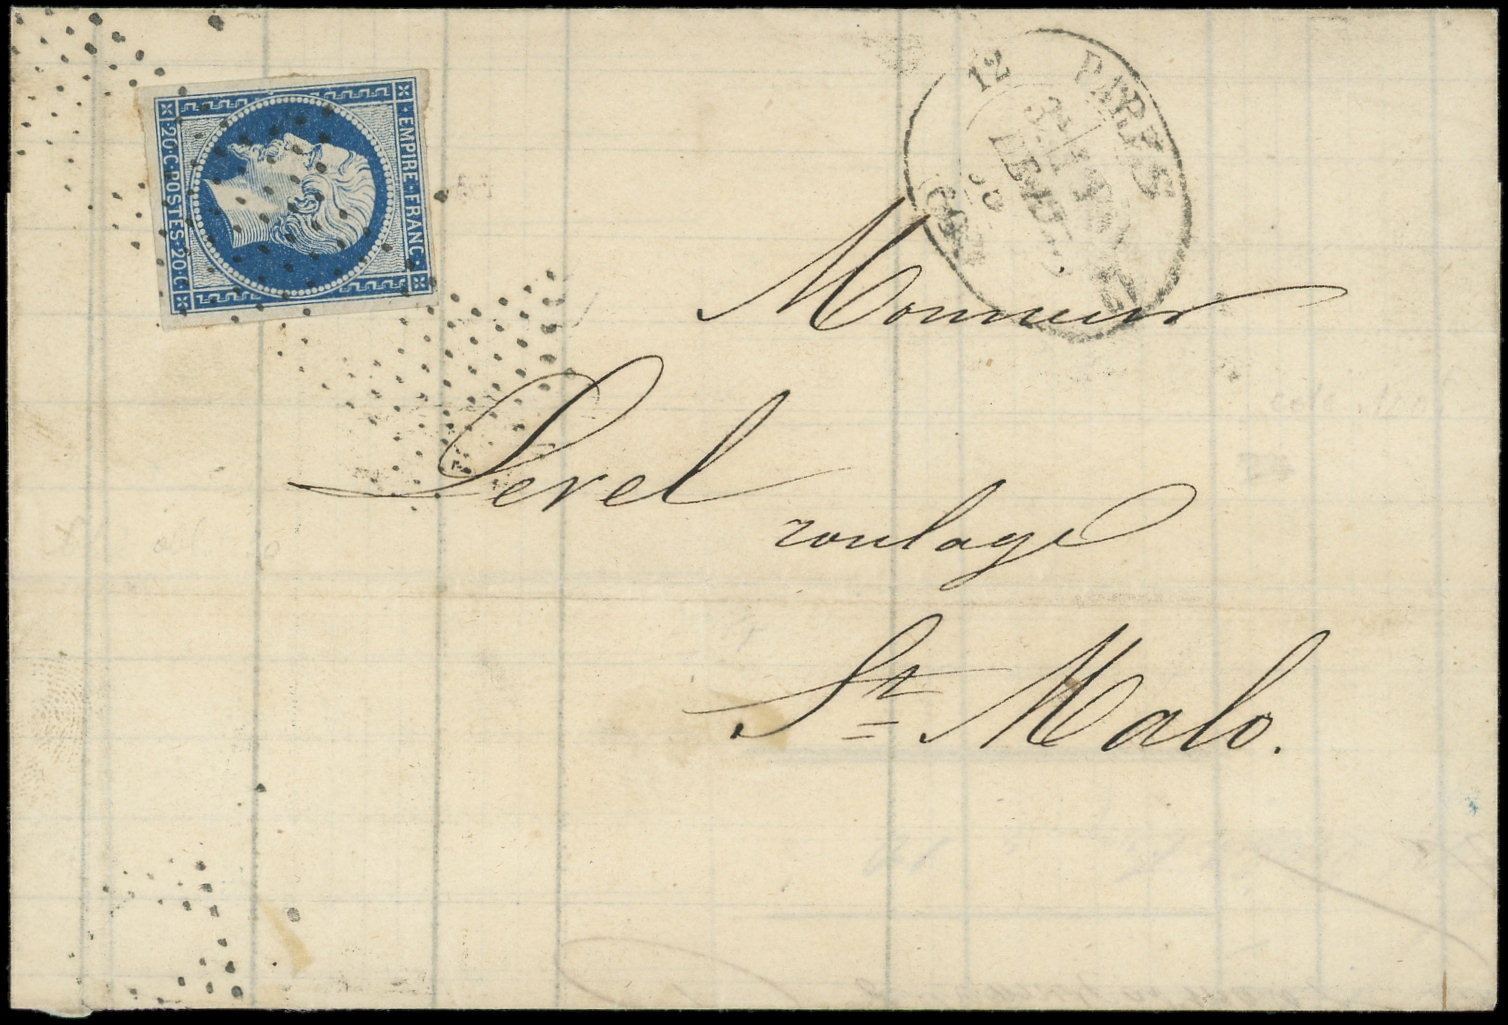 EMPIRE·FRANC·
20·C·POSTES·20·C
12 PARIS
Monsieur
Level
roulage
St Malo.